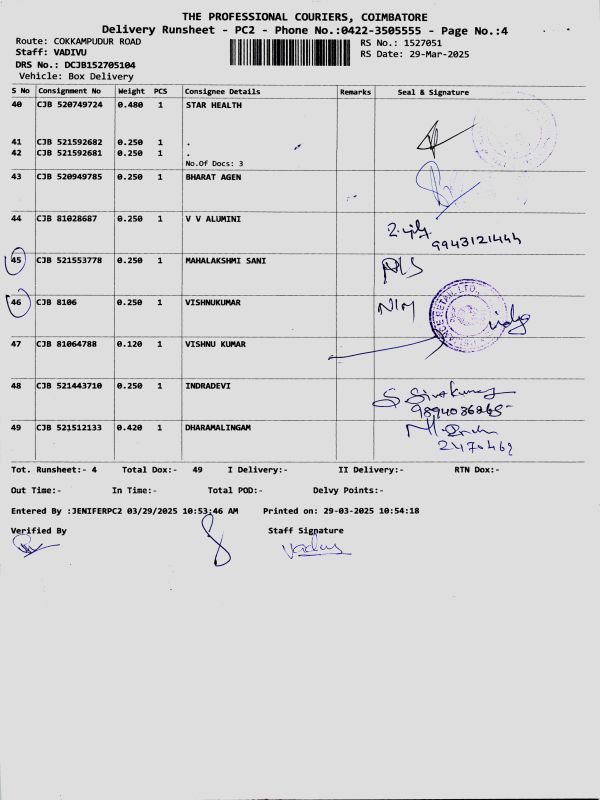 THE PROFESSIONAL COURIERS, COIMBATORE
Delivery Runsheet - PC2 - Phone No.:0422-3505555 - Page No.:4
Route: COKKAMPUDUR ROAD
RS No.: 1527051
Staff: VADIVU
RS Date: 29-Mar-2025
DRS No.: DCJB152705104
Vehicle: Box Delivery
S No Consignment No Weight PCS Consignee Details Remarks Seal & Signature
40 CJB 520749724 0.480 1 STAR HEALTH
41 CJB 521592682 0.250 1 .
42 CJB 521592681 0.250 1 .
No.Of Docs: 3
43 CJB 520949785 0.250 1 BHARAT AGEN
44 CJB 81028687 0.250 1 V V ALUMINI
9943121444
45 CJB 521553778 0.250 1 MAHALAKSHMI SANI
46 CJB 8106 0.250 1 VISHNUKUMAR
47 CJB 81064788 0.120 1 VISHNU KUMAR
48 CJB 521443710 0.250 1 INDRADEVI
S. Sivakumar
9894036865
49 CJB 521512133 0.420 1 DHARAMALINGAM
2470469
Tot. Runsheet:- 4 Total Dox:- 49 I Delivery:- II Delivery:- RTN Dox:-
Out Time:- In Time:- Total POD:- Delvy Points:-
Entered By :JENIFERPC2 03/29/2025 10:53:46 AM Printed on: 29-03-2025 10:54:18
Verified By Staff Signature
Vadivu